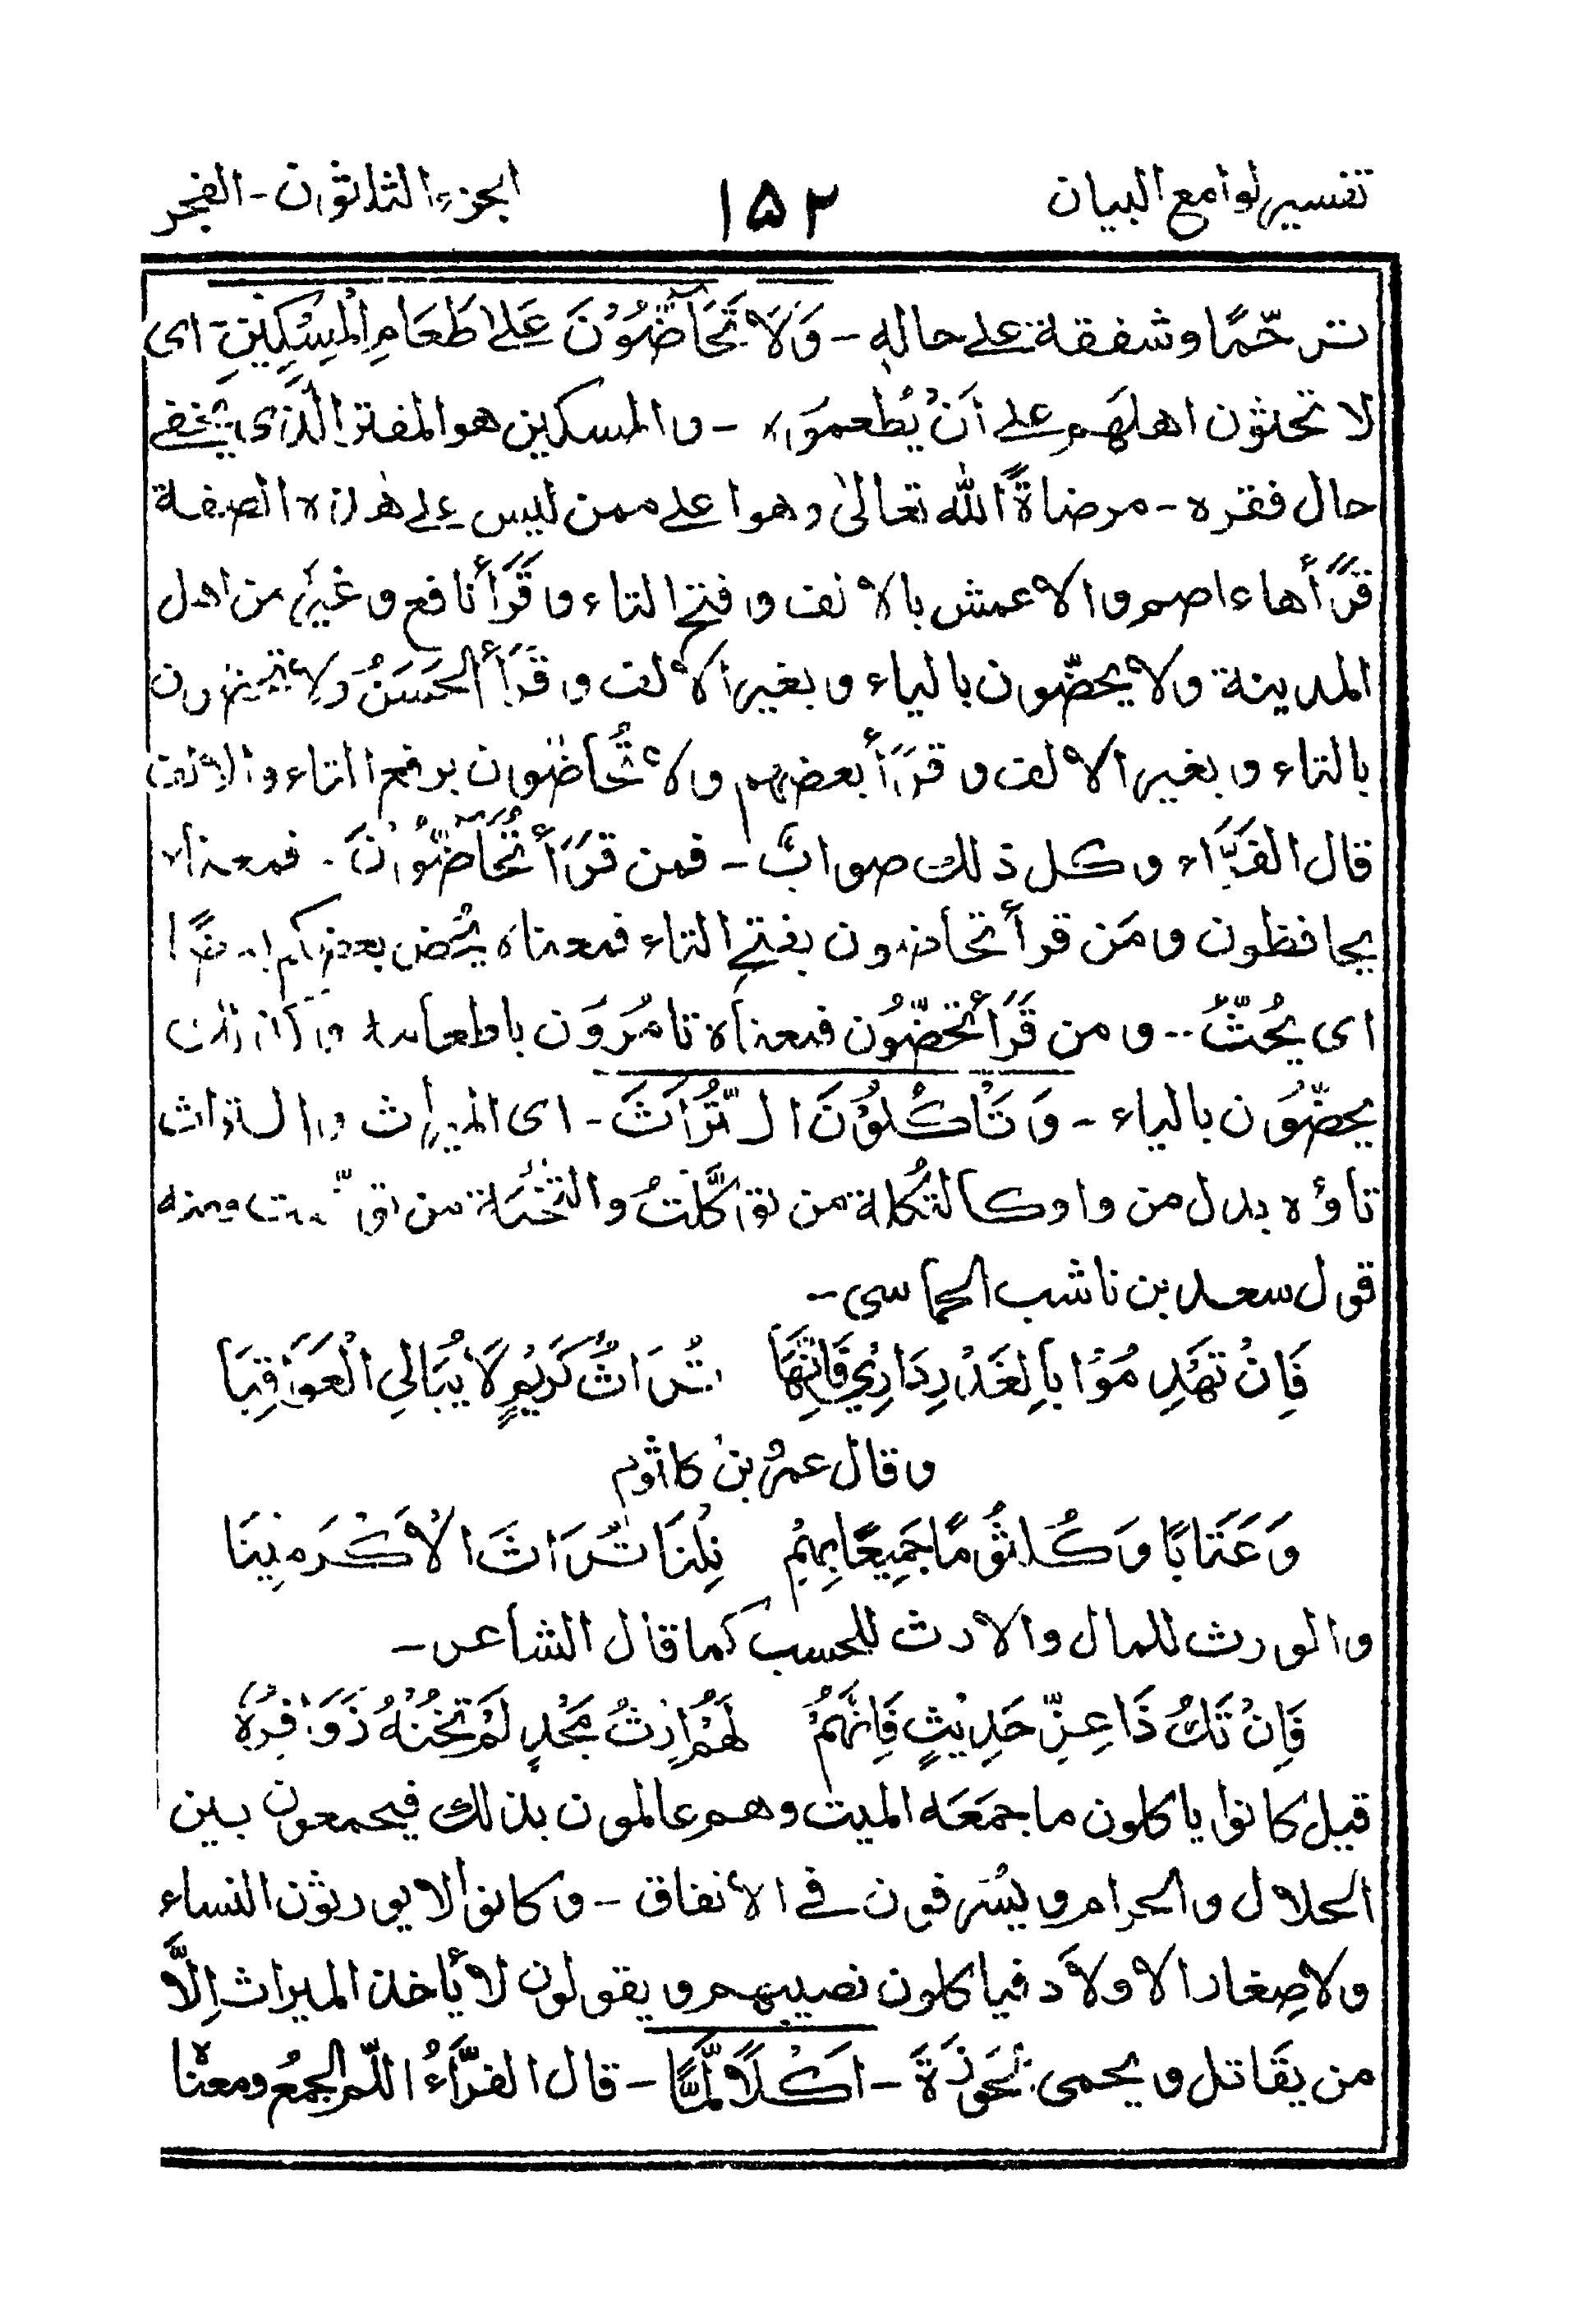 تفسير لوامع البيان ۱۵۲ الجزء الثلاثون - الفجر
ترحّمًا وشفقة على حاله - وَلَا تَحَاضُّوْنَ عَلىٰ طَعَامِ الْمِسْكِيْنِ - اى
لا تحثون اهلهم على أَنْ يُطعموه - والمسكين هو المفتر الذى يخفى
حال فقره - مرضاةً الله تعالىٰ وهو اعلى ممن ليس على هذه الصفة
قَرَأها عاصم والاعمش بالالف وفتح التاء وقَرَأ نافع وغيره من اهل
المدينة ولا يحضّون بالياء وبغير الالف وقَرَأ الحَسَنُ ولا تحضون
بالتاء وبغير الالف وقَرَأ بعضهم ولا تُحاضون برفع التاء والالف
قال الفَرَّاء وكل ذلك صوابٌ - فمن قَرَأ تُحَاضُّوْنَ - فمعناه
يحافظون ومَن قرأ تحاضون بفتح التاء فمعناه يحُض بعضكم بعضًا
اى يحُثّ - ومن قَرَأ تحَضّوُن فمعناه تامُرَون باطعامه وكذلك
يحضّوُن بالياء - وَتَأْكُلُوْنَ التُّرَاثَ - اى الميراث والتواث
تاؤه بدل من واو كالتُكلاة من تواكَّلتُ والتُّخمَة من ومنه
قول سعد بن ناشب الحماسى -
فَاِنْ تَهْدِمُوْا بِالْغَدْرِ دَارِيْ فَاِنَّهَا تُرَاثُ كَرِيْمٍ لَا يُبَالِي الْعَوَاقِبَا
وقال عمرُ بن كلثوم
وَعَتَابًا وَكُلثُوْمًا جَمِيْعًا بِهِمْ نِلْنَا تُرَاثَ الْاَكْرَمِيْنَا
والورث للمال والارث للحسب كما قال الشاعر -
فَاِنْ تَكُ ذَا عِزّ حَدِيْثٍ فَاِنَّهُمْ لَهُمْ اِرْثُ مَجْدٍ لَمْ تَخُنْهُ زَوَافِرُهٗ
قيل كانوا ياكلون ما جمَعَه الميت وهم عالمون بذلك فيجمعون بين
الحلال والحرام ويسُرفون فى الأنفاق - وكانوا لا يورثون النساء
ولا صِغار الاولاَد فياكلون نصيبهم ويقولون لا يأخذ الميراث اِلَّا
من يقَاتل ويحمى الحَوزَةَ - اَكْلًا لَّمًّا - قال الفرَّاءُ اللّم الجمعُ ومعناه